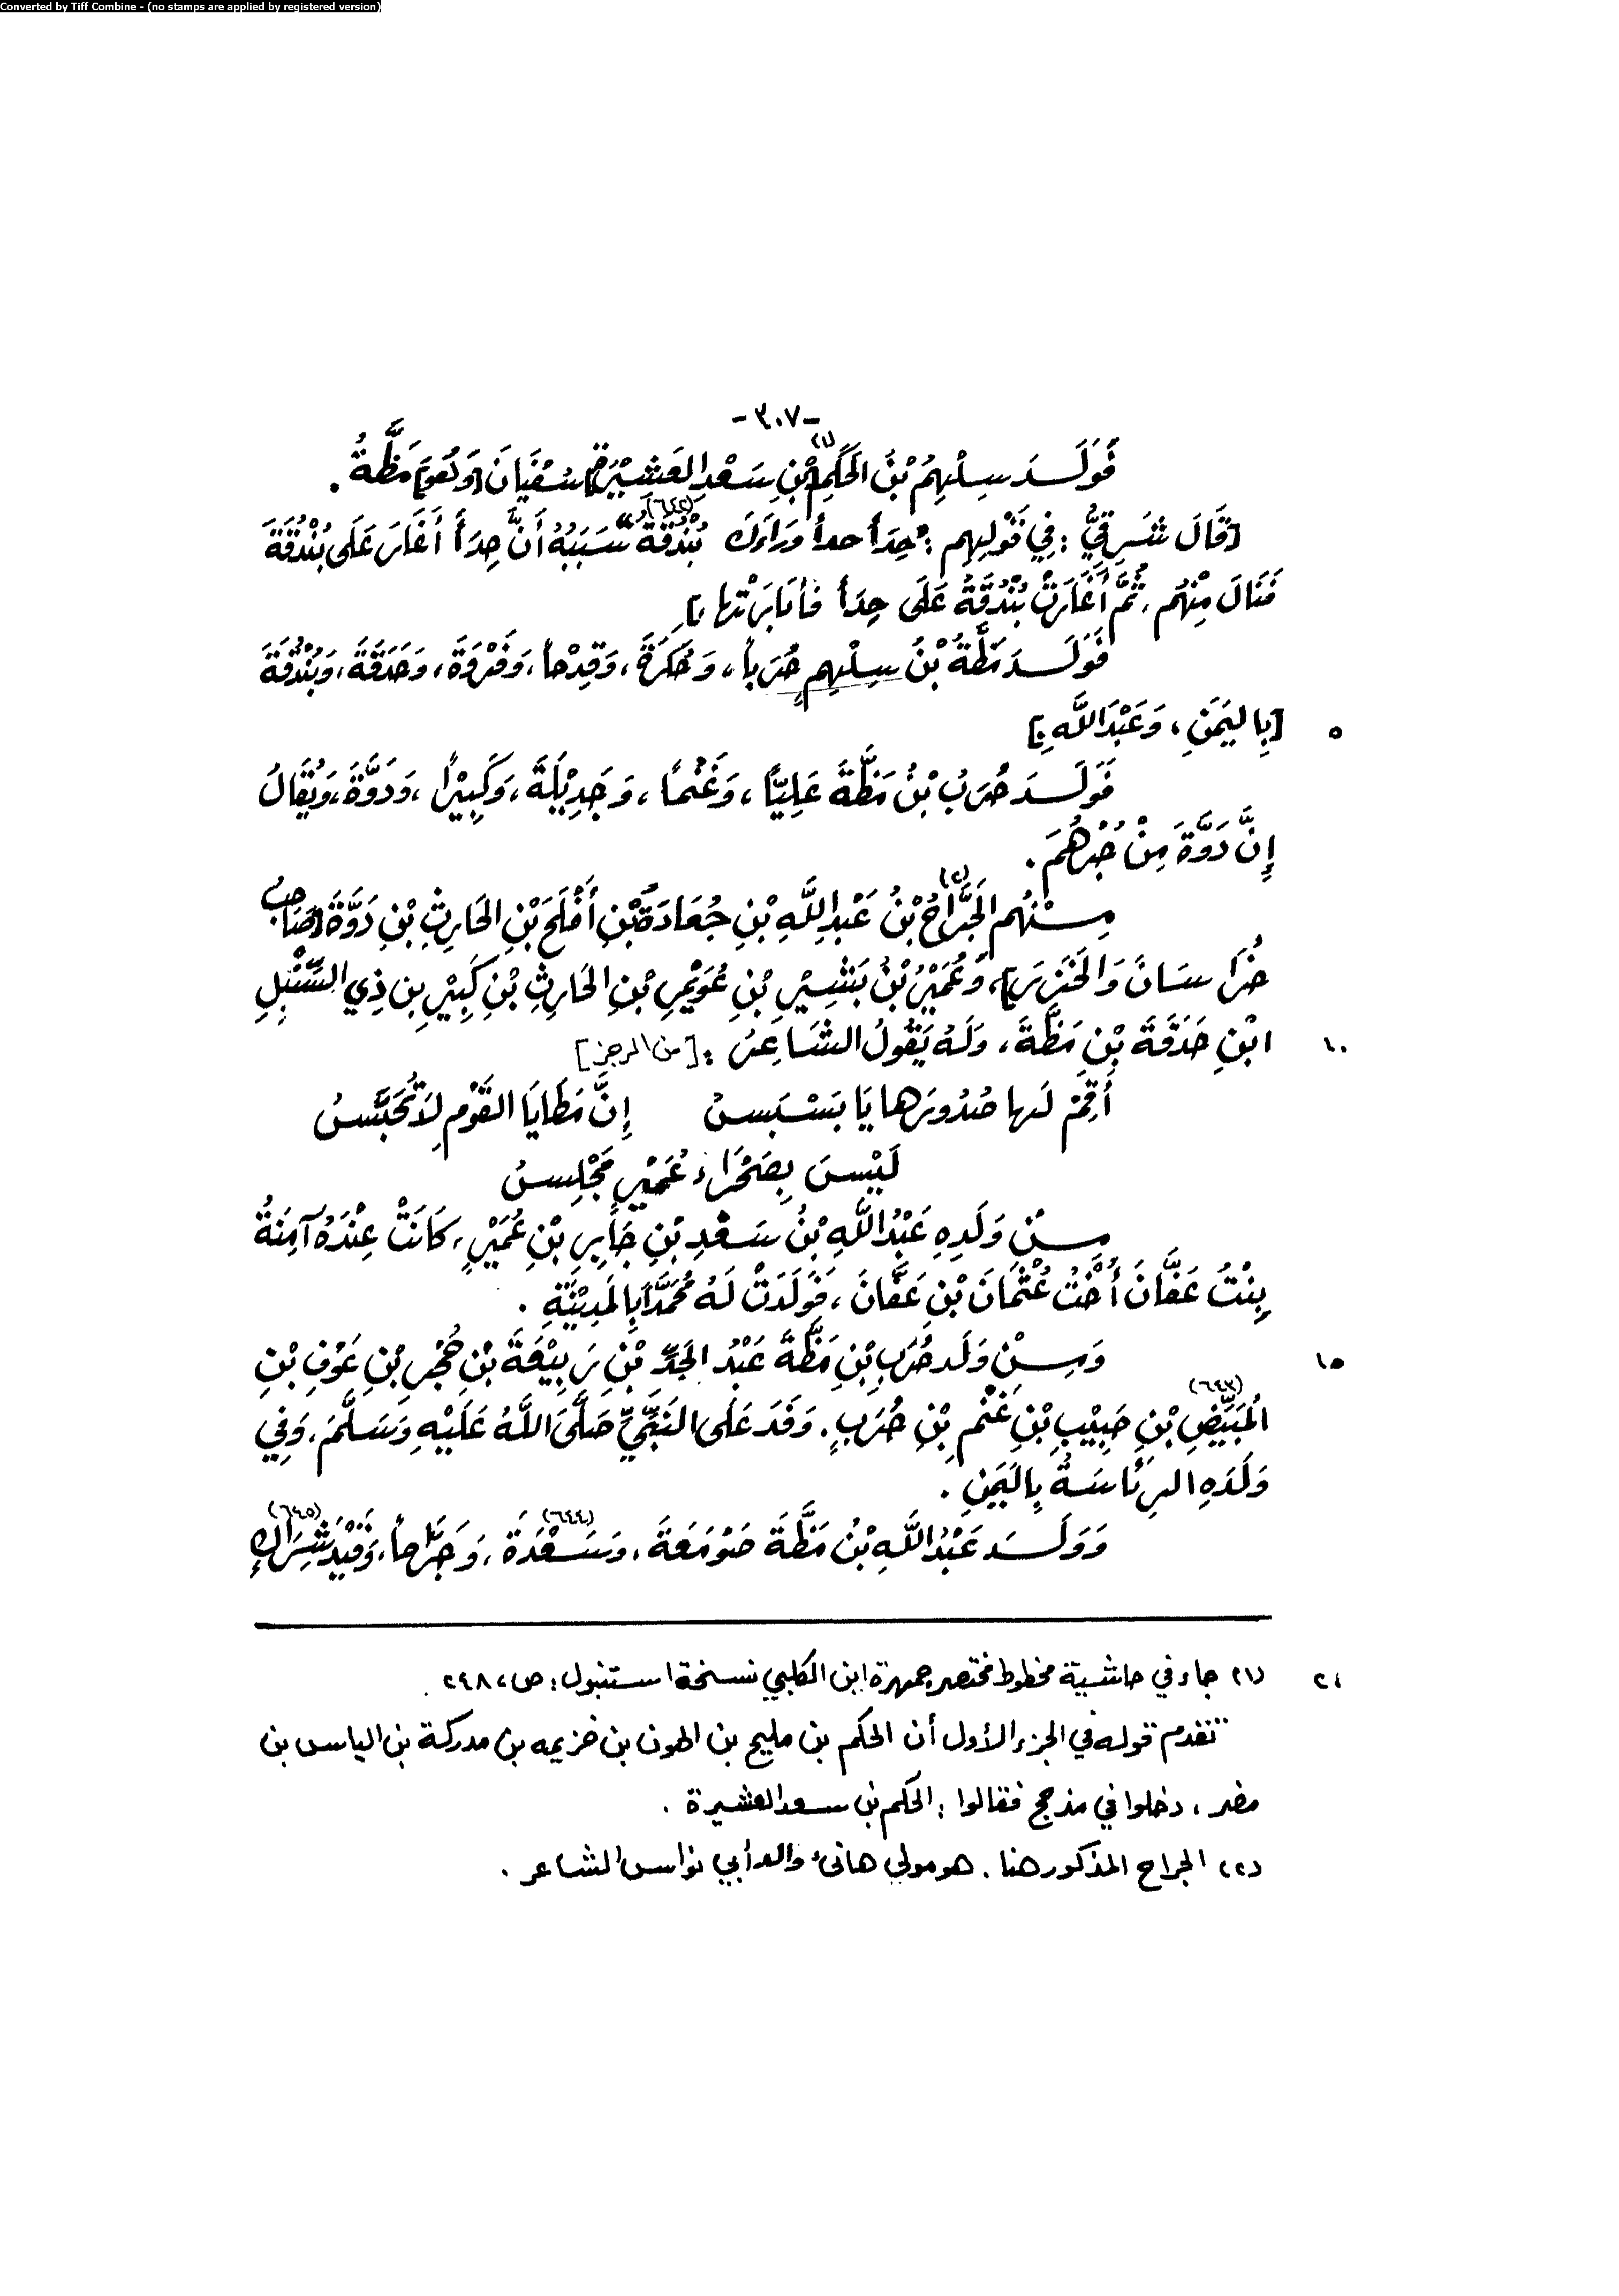 Converted by Tiff Combine - (no stamps are applied by registered version)
-٣٠٧-
فَوَلَـدَ سِلْهِمُ بْنُ الحَكَمِ(١) [بْنِ سَعْدِ العَشِيْرَةِ] سُفْيَانَ [وَهُوَ] مَظَّةُ .
[قَالَ شَرقِيُّ : فِي قَوْلِهِم : «حِدَأَ حدأ وَرَاءَكَ بُنْدُقَةُ(٦٤٢)» سَبَبُهُ أَنَّ حِدَأَ أَغَارَ عَلَى بُنْدُقَةَ
فَنَالَ مِنْهُم ، ثُمَّ أَغَارَتْ بُنْدُقَةُ عَلَى حِدَأَ فأبَارَتْها].
فَوَلَـدَ مَظَّةُ بْنُ سِلْهِمٍ حُرَباً ، وَحُكرَةَ ، وَقِدْحاً ، وَفَرْوَةَ ، وَحَدَقَةَ ، وَبُنْدُقَةَ
٥ [بِاليَمَنِ ، وَعَبْدَاللَّهِ .]
فَوَلَـدَ حُرَبُ بْنُ مَظَّةَ عَلِيّاً ، وَغَنْماً ، وَجَدِيْلَةَ ، وَكَبِيْراً ، وَدَوَّةَ ، وَيُقَالُ
إِنَّ دَوَّةَ مِنْ جُرْهُمَ .
مِـنْهُم الجَرَّاحُ(٢) بْنُ عَبْدِاللَّهِ بْنِ جُعَادَةَ بْنِ أَفْلَحَ بْنِ الحَارِثِ بْنِ دَوَّةَ [صَاحِبُ
خُرَاسَانَ وَالخَزَرِ] ، وَعُمَيْرُ بْنُ بَشِيْرِ بْنِ عُوَيْمِرِ بْنِ الحَارِثِ بْنِ كَبِيْرِ بِن ذِي السَّبَلِ
١٠ ابْنِ حَدَقَةَ بْنِ مَظَّةَ ، وَلَهُ يَقُولُ الشَاعِرُ : [من الرجز]
أَقِمْ لَها صُدُورَها يَا بَسْبَسُ إِنَّ مَطَايَا القَوْمِ لاَتُحَبَّسُ
لَيْسَ بِصَحْرَاءِ عُمَيْرٍ مَجْلِسُ
مِـنْ وَلَدِهِ عَبْدُاللَّهِ بْنُ سَعْدِ بْنِ جَابِرِ بْنِ عُمَيْرٍ ، كَانَتْ عِنْدَهُ آمِنَةُ
بِنْتُ عَفَّانَ أُخْتُ عُثْمَانَ بْنِ عَفَّانَ ، فَوَلَدَتْ لَهُ مُحَمَّداً بِالمَدِيْنَةِ .
١٥ وَمِـنْ وَلَدِ حُرَبِ بْنِ مَظَّةَ عَبْدُ الجَدِّ بْنِ رَبِيْعَةَ بْنِ حُجْرِ بْنِ عَوْفِ بْنِ
المُبَيِّضِ(٦٤٣) بْنِ حَبِيْبِ بْنِ غَنْمِ بْنِ حُرَبٍ . وَفَدَ عَلَى النَبِّيِّ صَلَّى اللَّهُ عَلَيْهِ وَسَلَّمَ ، وَفِي
وَلَدِهِ الرِئَاسَةُ بِاليَمَنِ .
وَوَلَـدَ عَبْدُاللَّهِ بْنُ مَظَّةَ صَوْمَعَةَ ، وَسَعْدَةَ(٦٤٤) ، وَجَرَّاحاً ، وَقَيْدَ شِرَاكٍ(٦٤٥)
٢٤ (١) جاء في حاشية مخطوط مختصر جمهرة ابن الكلبي نسخة استنبول : ص ، ٢٤٨ .
تقدم قوله في الجزء الأول أن الحكم بن مليح بن الهون بن خزيمه بن مدركة بن الياس بن
مضر ، دخلوا في مذحج فقالوا : الحكم بن سعد العشيرة .
(٢) الجراح المذكور هنا . هو مولى هانئ والد أبي نواس الشاعر .